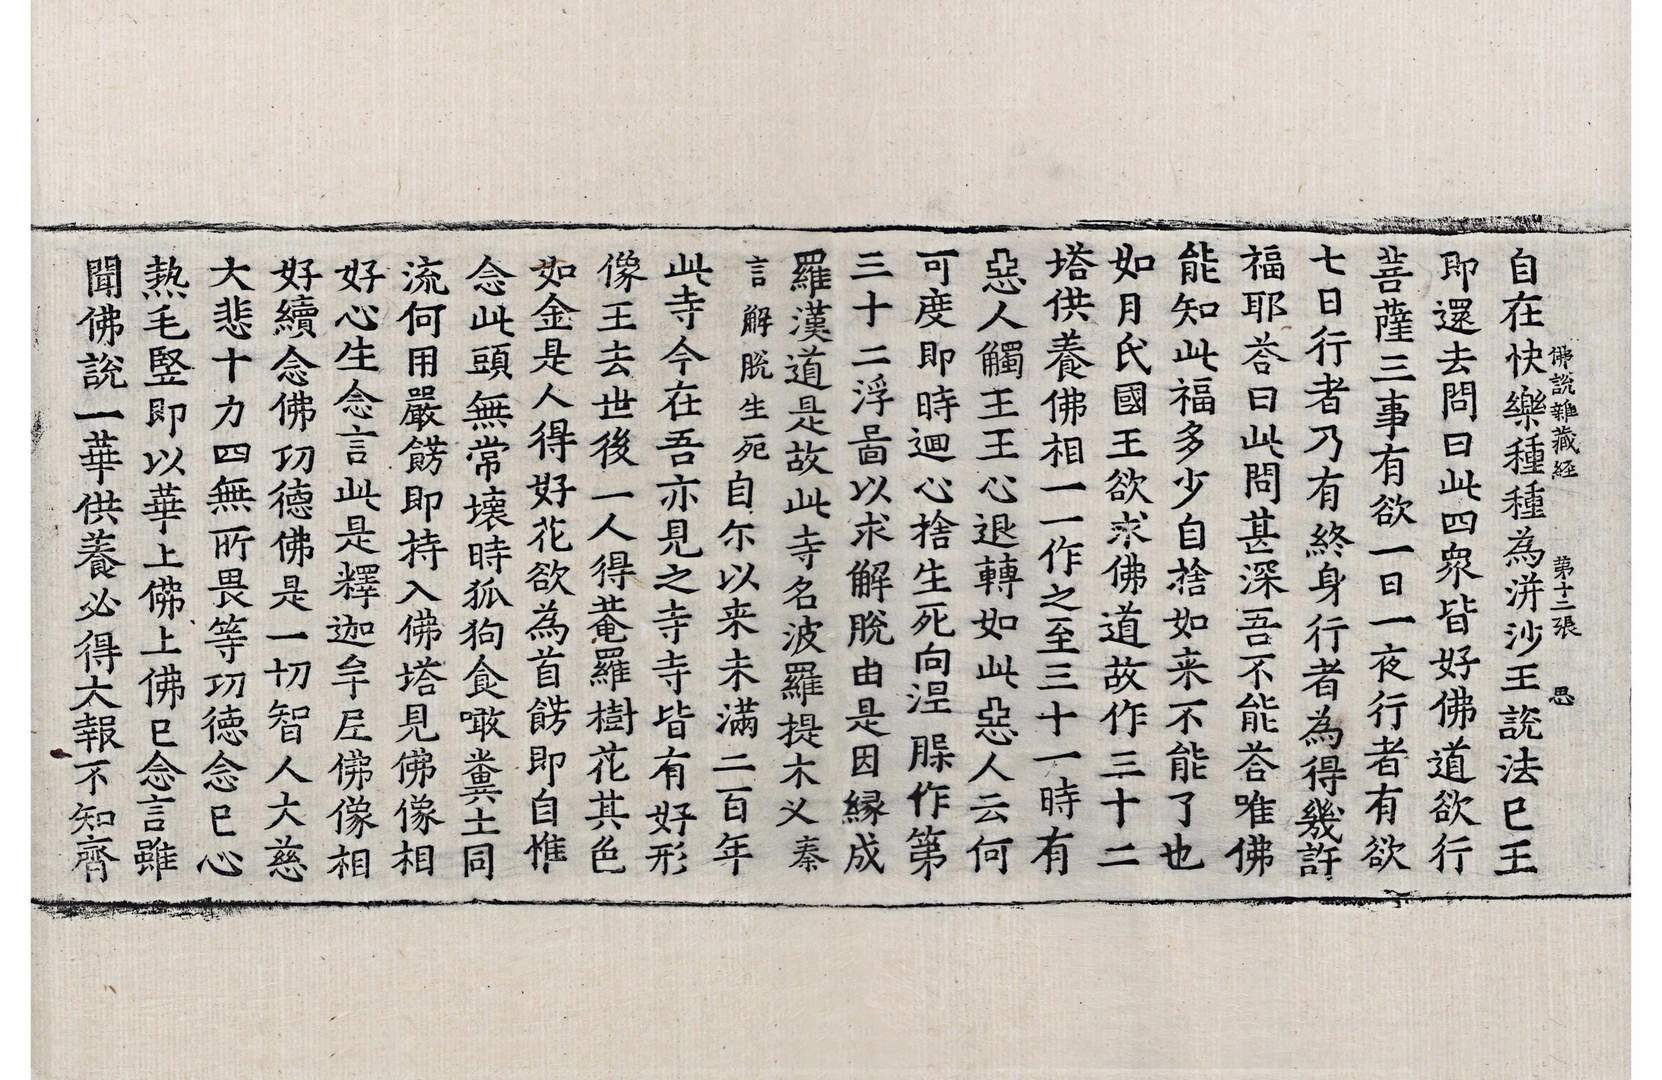 佛說雜藏経　第十二張　思
自在快樂種種為洴沙王說法已王
即還去問曰此四眾皆好佛道欲行
菩薩三事有欲一日一夜行者有欲
七日行者乃有終身行者為得幾許
福耶荅曰此問甚深吾不能荅唯佛
能知此福多少自捨如来不能了也
如月氏國王欲求佛道故作三十二
塔供養佛相一一作之至三十一時有
惡人觸王王心退轉如此惡人云何
可度即時迴心捨生死向涅𦙾作第
三十二浮啚以求解脫由是因縁成
羅漢道是故此寺名波羅提木叉秦
言解脫生死自尓以来未滿二百年
此寺今在吾亦見之寺寺皆有好形
像王去世後一人得菴羅樹花其色
如金是人得好花欲為首餝即自惟
念此頭無常壞時狐狗食噉糞土同
流何用嚴餝即持入佛塔見佛像相
好心生念言此是釋迦牟尼佛像相
好續念佛功德佛是一切智人大慈
大悲十力四無所畏等功德念已心
熱毛竪即以華上佛上佛已念言雖
聞佛說一華供養必得大報不知齊